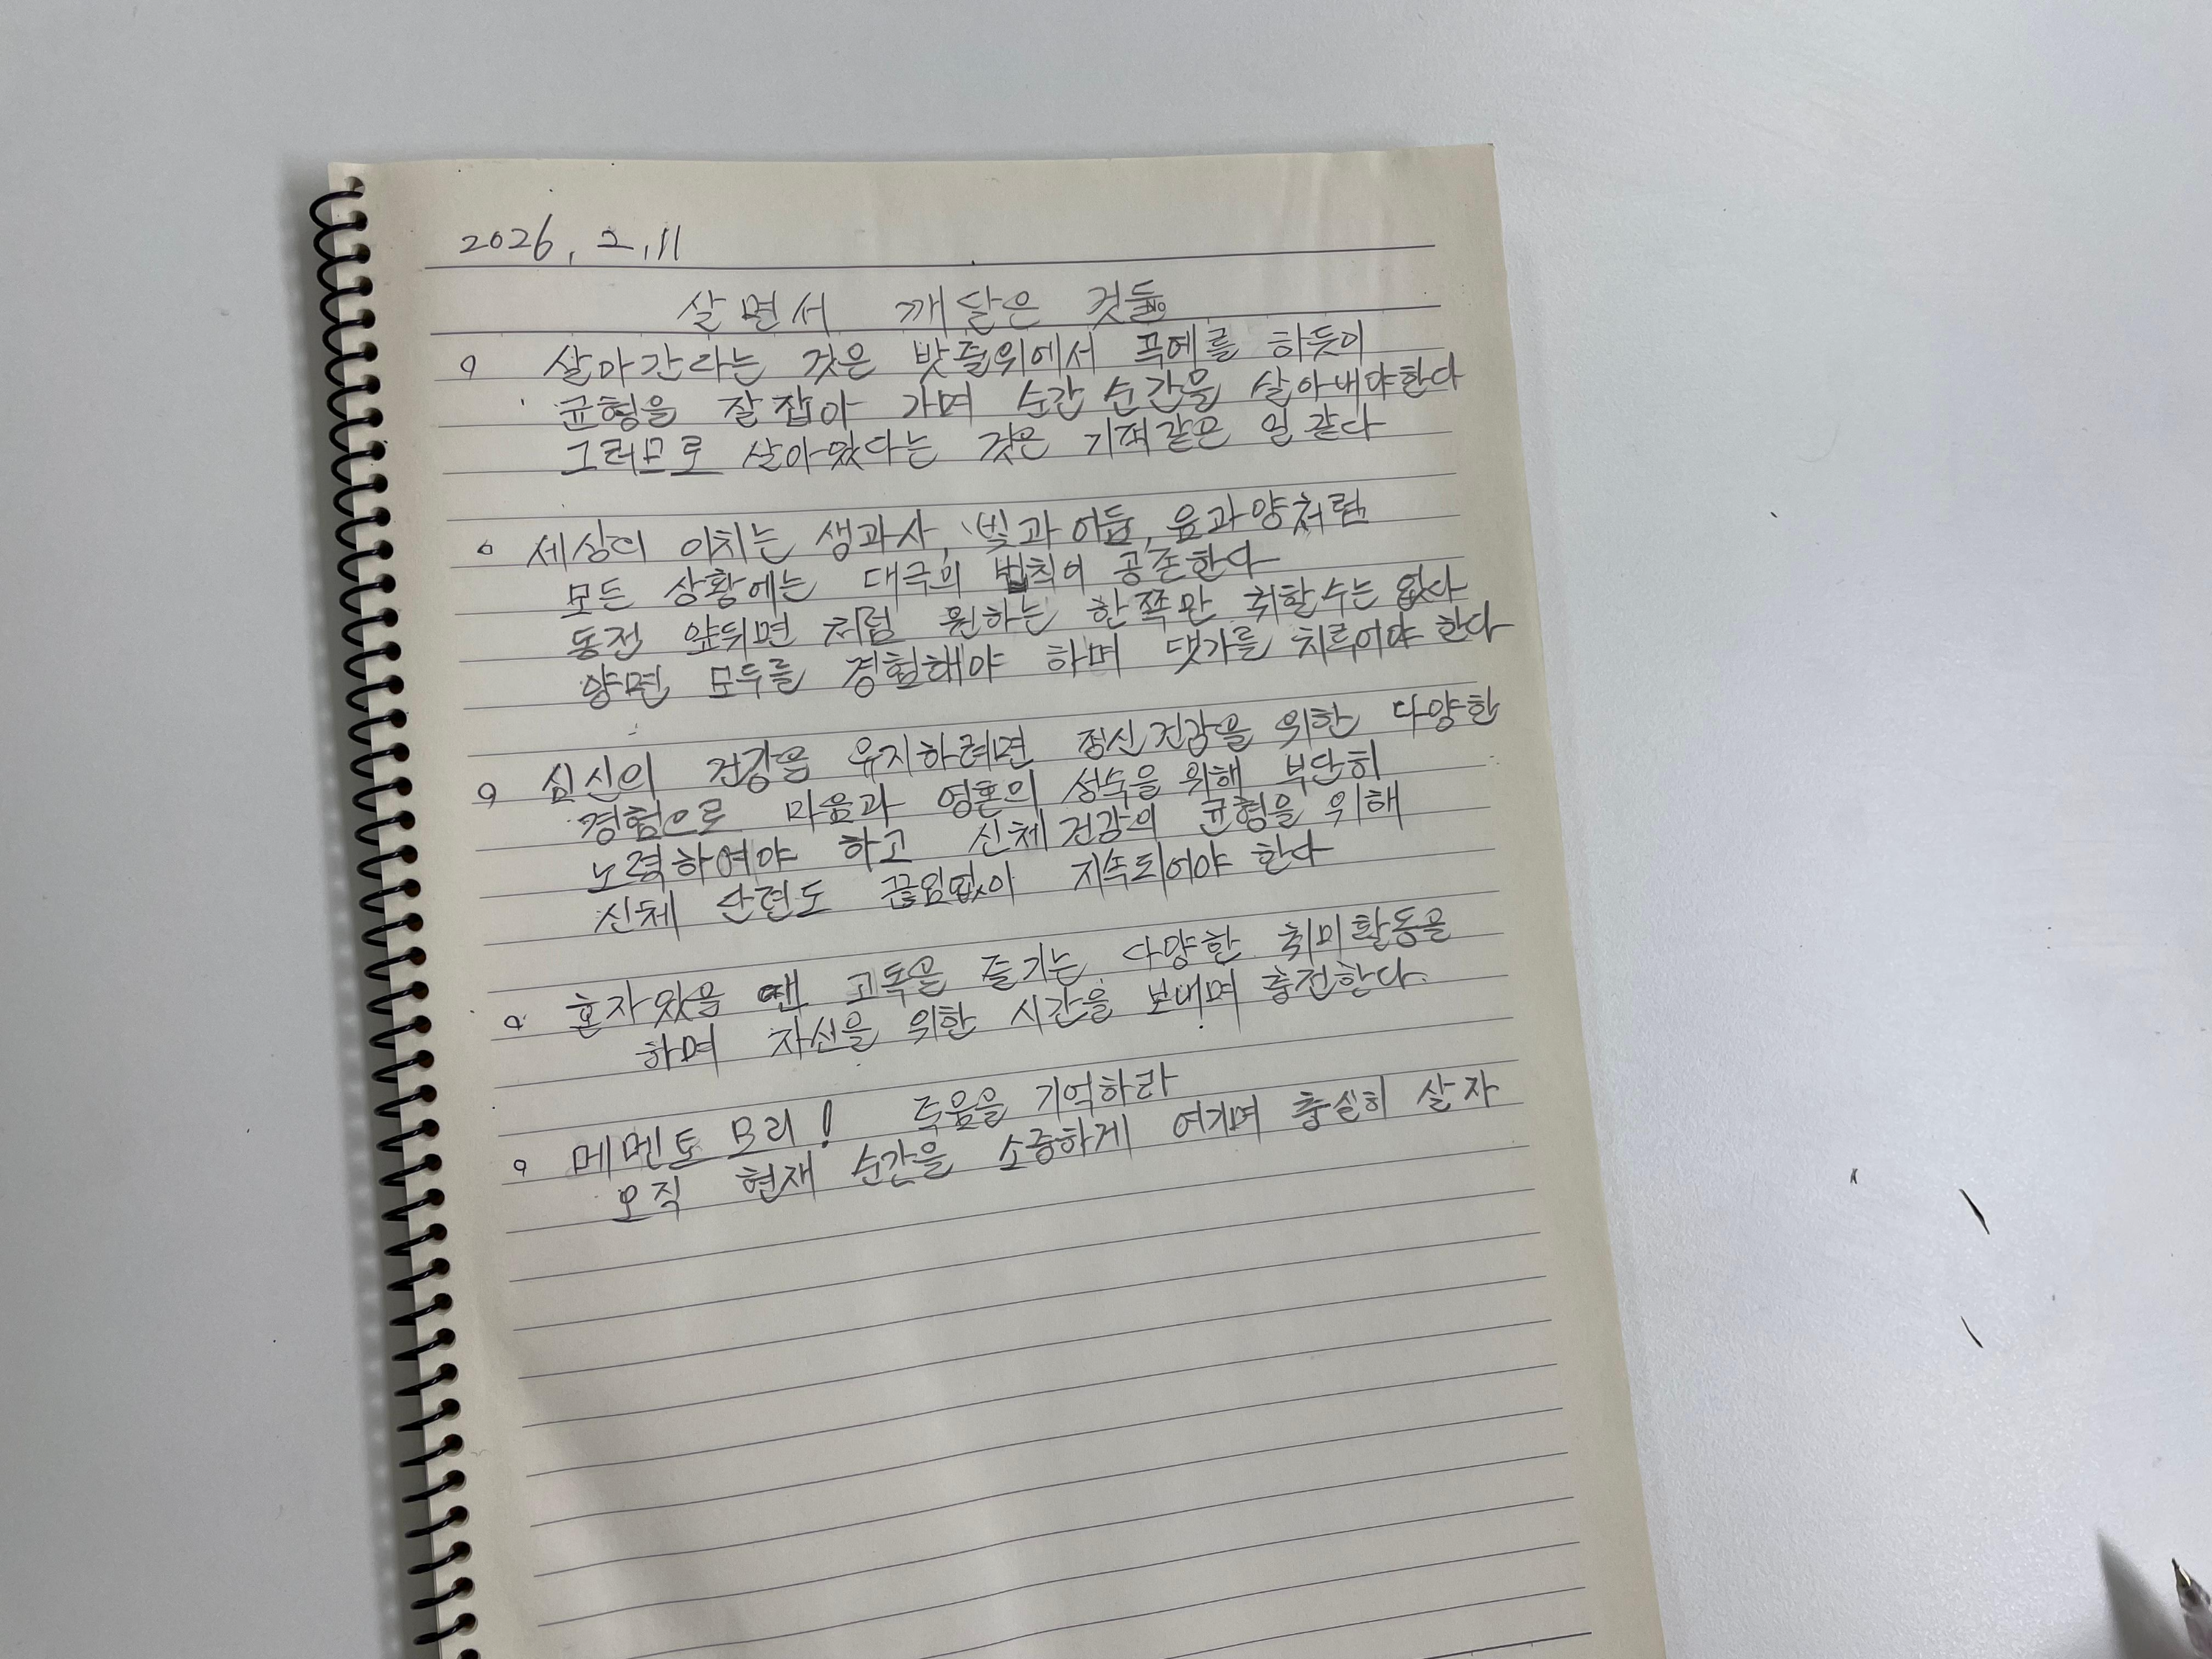 2026, 2, 11
살면서 깨달은 것들
살아간다는 것은 밧줄위에서 곡예를 하듯이
균형을 잘 잡아 가며 순간 순간을 살아내야한다
그러므로 살아있다는 것은 기적같은 일 같다
세상의 이치는 생과사, 빛과 어둠, 음과양처럼
모든 상황에는 대극의 법칙이 공존한다
동전 앞뒤면 처럼 원하는 한쪽만 취할수는 없다
양면 모두를 경험해야 하며 댓가를 치루어야 한다
심신의 건강을 유지하려면 정신건강을 위한 다양한
경험으로 마음과 영혼의 성숙을 위해 부단히
노력하여야 하고 신체건강의 균형을 위해
신체 단련도 끊임없이 지속되어야 한다
혼자있을 땐 고독을 즐기는 다양한 취미활동을
하며 자신을 위한 시간을 보내며 충전한다.
메멘토 모리! 죽음을 기억하라
오직 현재 순간을 소중하게 여기며 충실히 살자